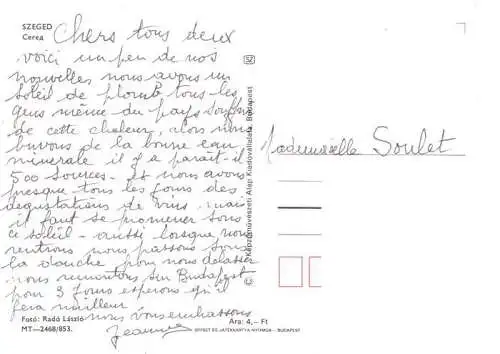 SZEGED
Cerea
Chers tous deux
voici un peu de nos
nouvelles nous avons un
soleil de plomb tous les
gens même du pays souffrent
de cette chaleur, alors nous
buvons de la bonne eau
minerale il y a parait-il
500 sources - et nous avons
presque tous les jours des
degustations de vins mais
il faut se promener sous
ce soleil - aussi lorsque nous
rentrons nous passons sous
la douche pour nous délasser
nous remontons sur Budapest
pour 3 jours esperons qu'il
fera meilleur
nous vous embrassons
Jeanne
Fotó: Radó László
Ara: 4,— Ft
MT—2468/853.
OFFSET ÉS JÁTÉKKÁRTYA NYOMDA - BUDAPEST
© Képzőművészeti Alap Kiadóvállalata, Budapest
Mademoiselle Soulet